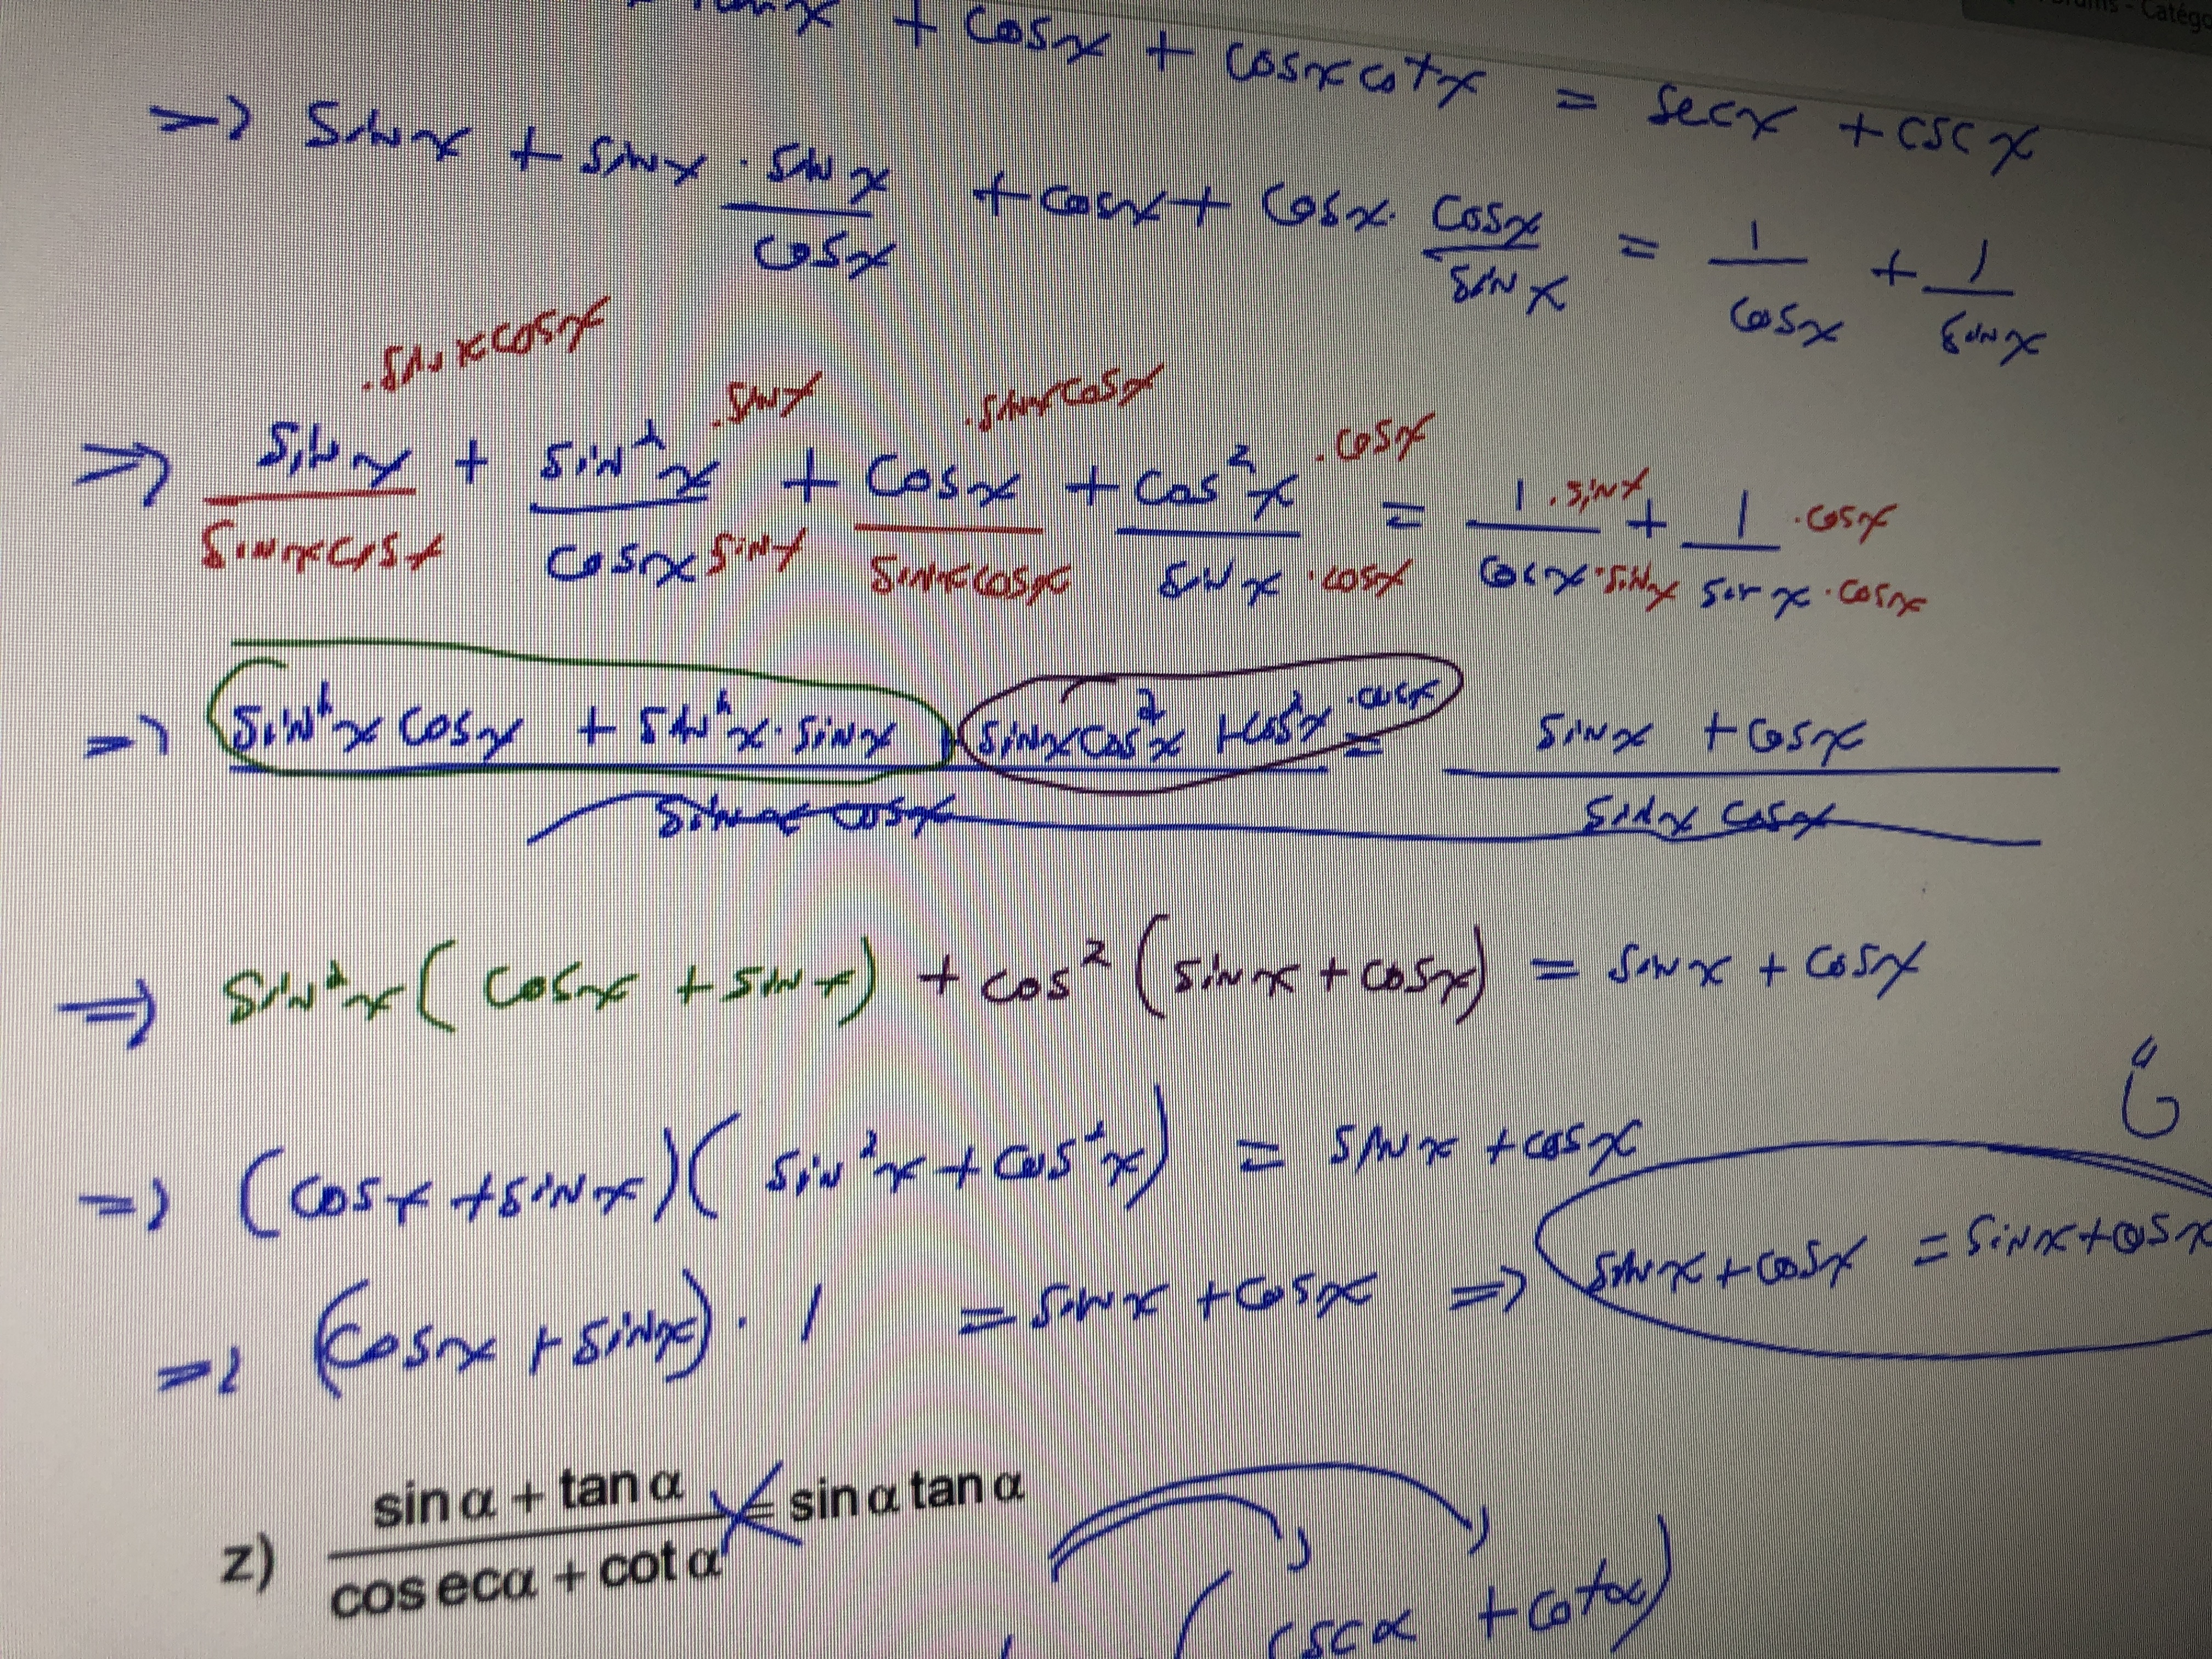 + cosx + cosx cotx = secx + cscx
=> sinx + sinx · sinx/cosx + cosx + cosx · cosx/sinx = 1/cosx + 1/sinx
.sinxcosx .sinx .sinxcosx .cosx
=> sinx + sin²x + cosx + cos²x = 1 .sinx + 1 .cosx
sinxcosx cosx sinx sinxcosx sinx .cosx cosx .sinx sinx .cosx
=> sin²x cosx + sin²x · sinx + sinxcos²x + cos²x .cosx = sinx + cosx
sinx cosx sinx cosx
=> sin²x ( cosx + sinx ) + cos² ( sinx + cosx ) = sinx + cosx
=> (cosx + sinx)( sin²x + cos²x ) = sinx + cosx
=> (cosx + sinx) · 1 = sinx + cosx => sinx + cosx = sinx + cosx
z) sin α + tan α / cos ecα + cot α = sin α tan α
(cscα + cotα)